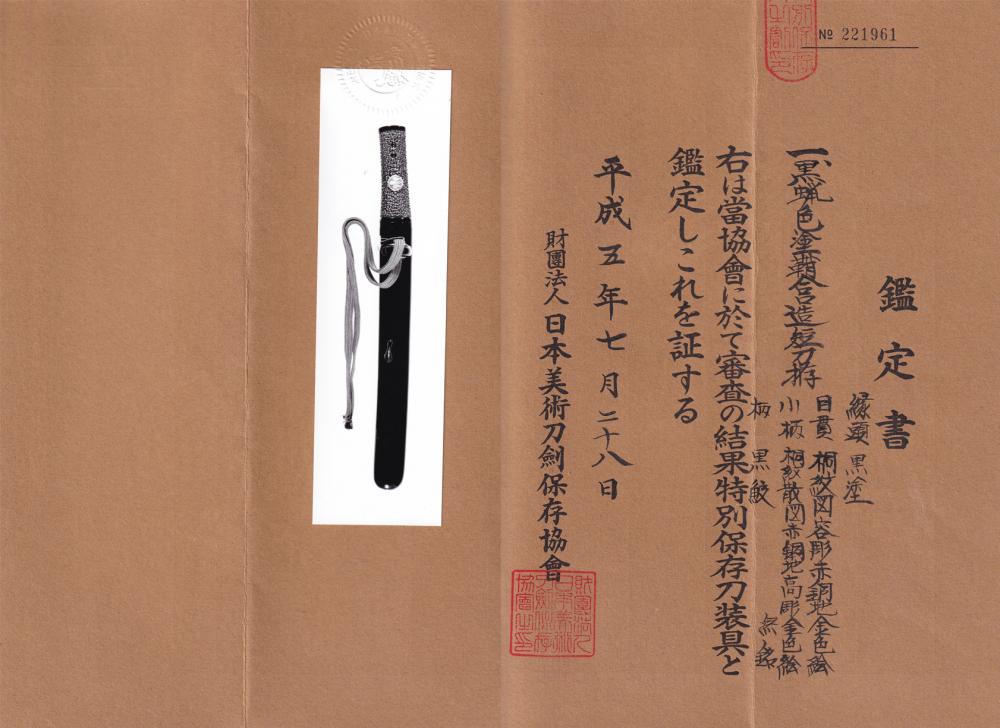 № 221961
鑑定書
一、黒蝋色塗鞘合口短刀拵
縁頭 黒塗
目貫 桐紋図容彫赤銅地金色絵
小柄 桐紋散図赤銅地高彫金色絵 無銘
柄 黒鮫
右は當協會に於て審査の結果特別保存刀装具と
鑑定しこれを証する
平成五年七月二十八日
財團法人日本美術刀劍保存協會
財團法人
日本美術
刀劍保存
協會之印